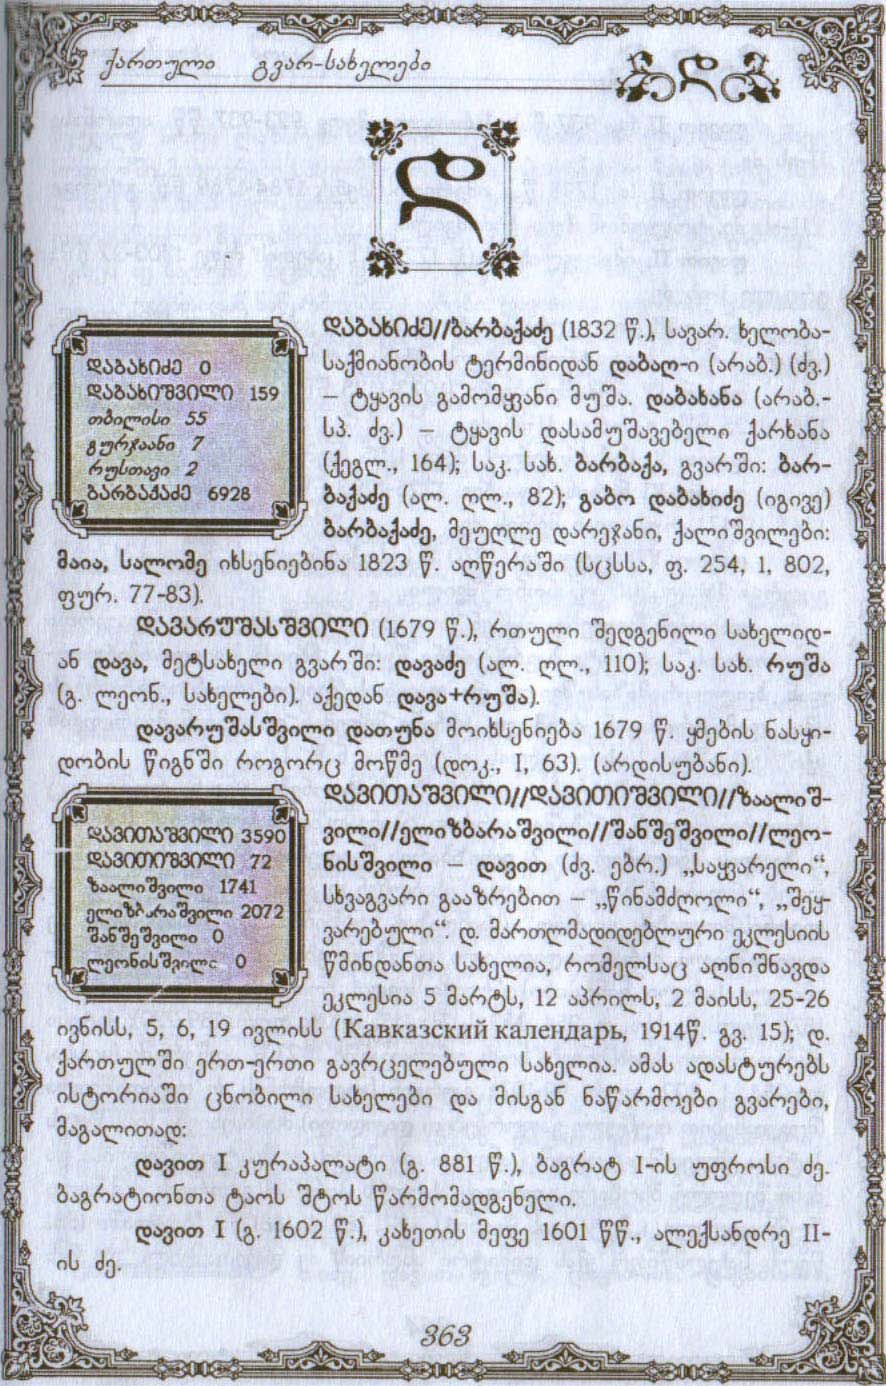 ქართული გვარ-სახელები
დ
დ
დაბახიძე 0
დაბახიშვილი 159
თბილისი 55
გურჯაანი 7
რუსთავი 2
ბარბაქაძე 6928
დაბახიძე//ბარბაქაძე (1832 წ.), სავარ. ხელობა-
საქმიანობის ტერმინიდან დაბაღ-ი (არაბ.) (ძვ.)
– ტყავის გამომყვანი მუშა. დაბახანა (არაბ.-
სპ. ძვ.) – ტყავის დასამუშავებელი ქარხანა
(ქეგლ., 164); საკ. სახ. ბარბაქა, გვარში: ბარ-
ბაქაძე (ალ. ღლ., 82); გაბო დაბახიძე (იგივე)
ბარბაქაძე, მეუღლე დარეჯანი, ქალიშვილები:
მაია, სალომე იხსენიებინა 1823 წ. აღწერაში (სცსსა, ფ. 254, 1, 802,
ფურ. 77-83).
დავარუშასშვილი (1679 წ.), რთული შედგენილი სახელიდ-
ან დავა, მეტსახელი გვარში: დავაძე (ალ. ღლ., 110); საკ. სახ. რუშა
(გ. ლეონ., სახელები). აქედან დავა+რუშა).
დავარუშასშვილი დათუნა მოიხსენიება 1679 წ. ყმების ნასყი-
დობის წიგნში როგორც მოწმე (დოკ., I, 63). (არდისუბანი).
დავითაშვილი 3590
დავითიშვილი 72
ზაალიშვილი 1741
ელიზბარაშვილი 2072
შანშეშვილი 0
ლეონისშვილი 0
დავითაშვილი//დავითიშვილი//ზაალიშ-
ვილი//ელიზბარაშვილი//შანშეშვილი//ლეო-
ნისშვილი – დავით (ძვ. ებრ.) „საყვარელი“,
სხვაგვარი გააზრებით – „წინამძღოლი“, „შეყ-
ვარებული“. დ. მართლმადიდებლური ეკლესიის
წმინდანთა სახელია, რომელსაც აღნიშნავდა
ეკლესია 5 მარტს, 12 აპრილს, 2 მაისს, 25-26
ივნისს, 5, 6, 19 ივლისს (Кавказский календарь, 1914წ. გვ. 15); დ.
ქართულში ერთ-ერთი გავრცელებული სახელია. ამას ადასტურებს
ისტორიაში ცნობილი სახელები და მისგან ნაწარმოები გვარები,
მაგალითად:
დავით I კურაპალატი (გ. 881 წ.), ბაგრატ I-ის უფროსი ძე.
ბაგრატიონთა ტაოს შტოს წარმომადგენელი.
დავით I (გ. 1602 წ.), კახეთის მეფე 1601 წწ., ალექსანდრე II-
ის ძე.
363